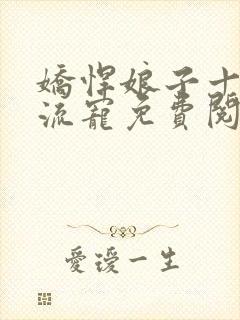 嬌悍娘子十
流寵免費閱
愛瑷一生